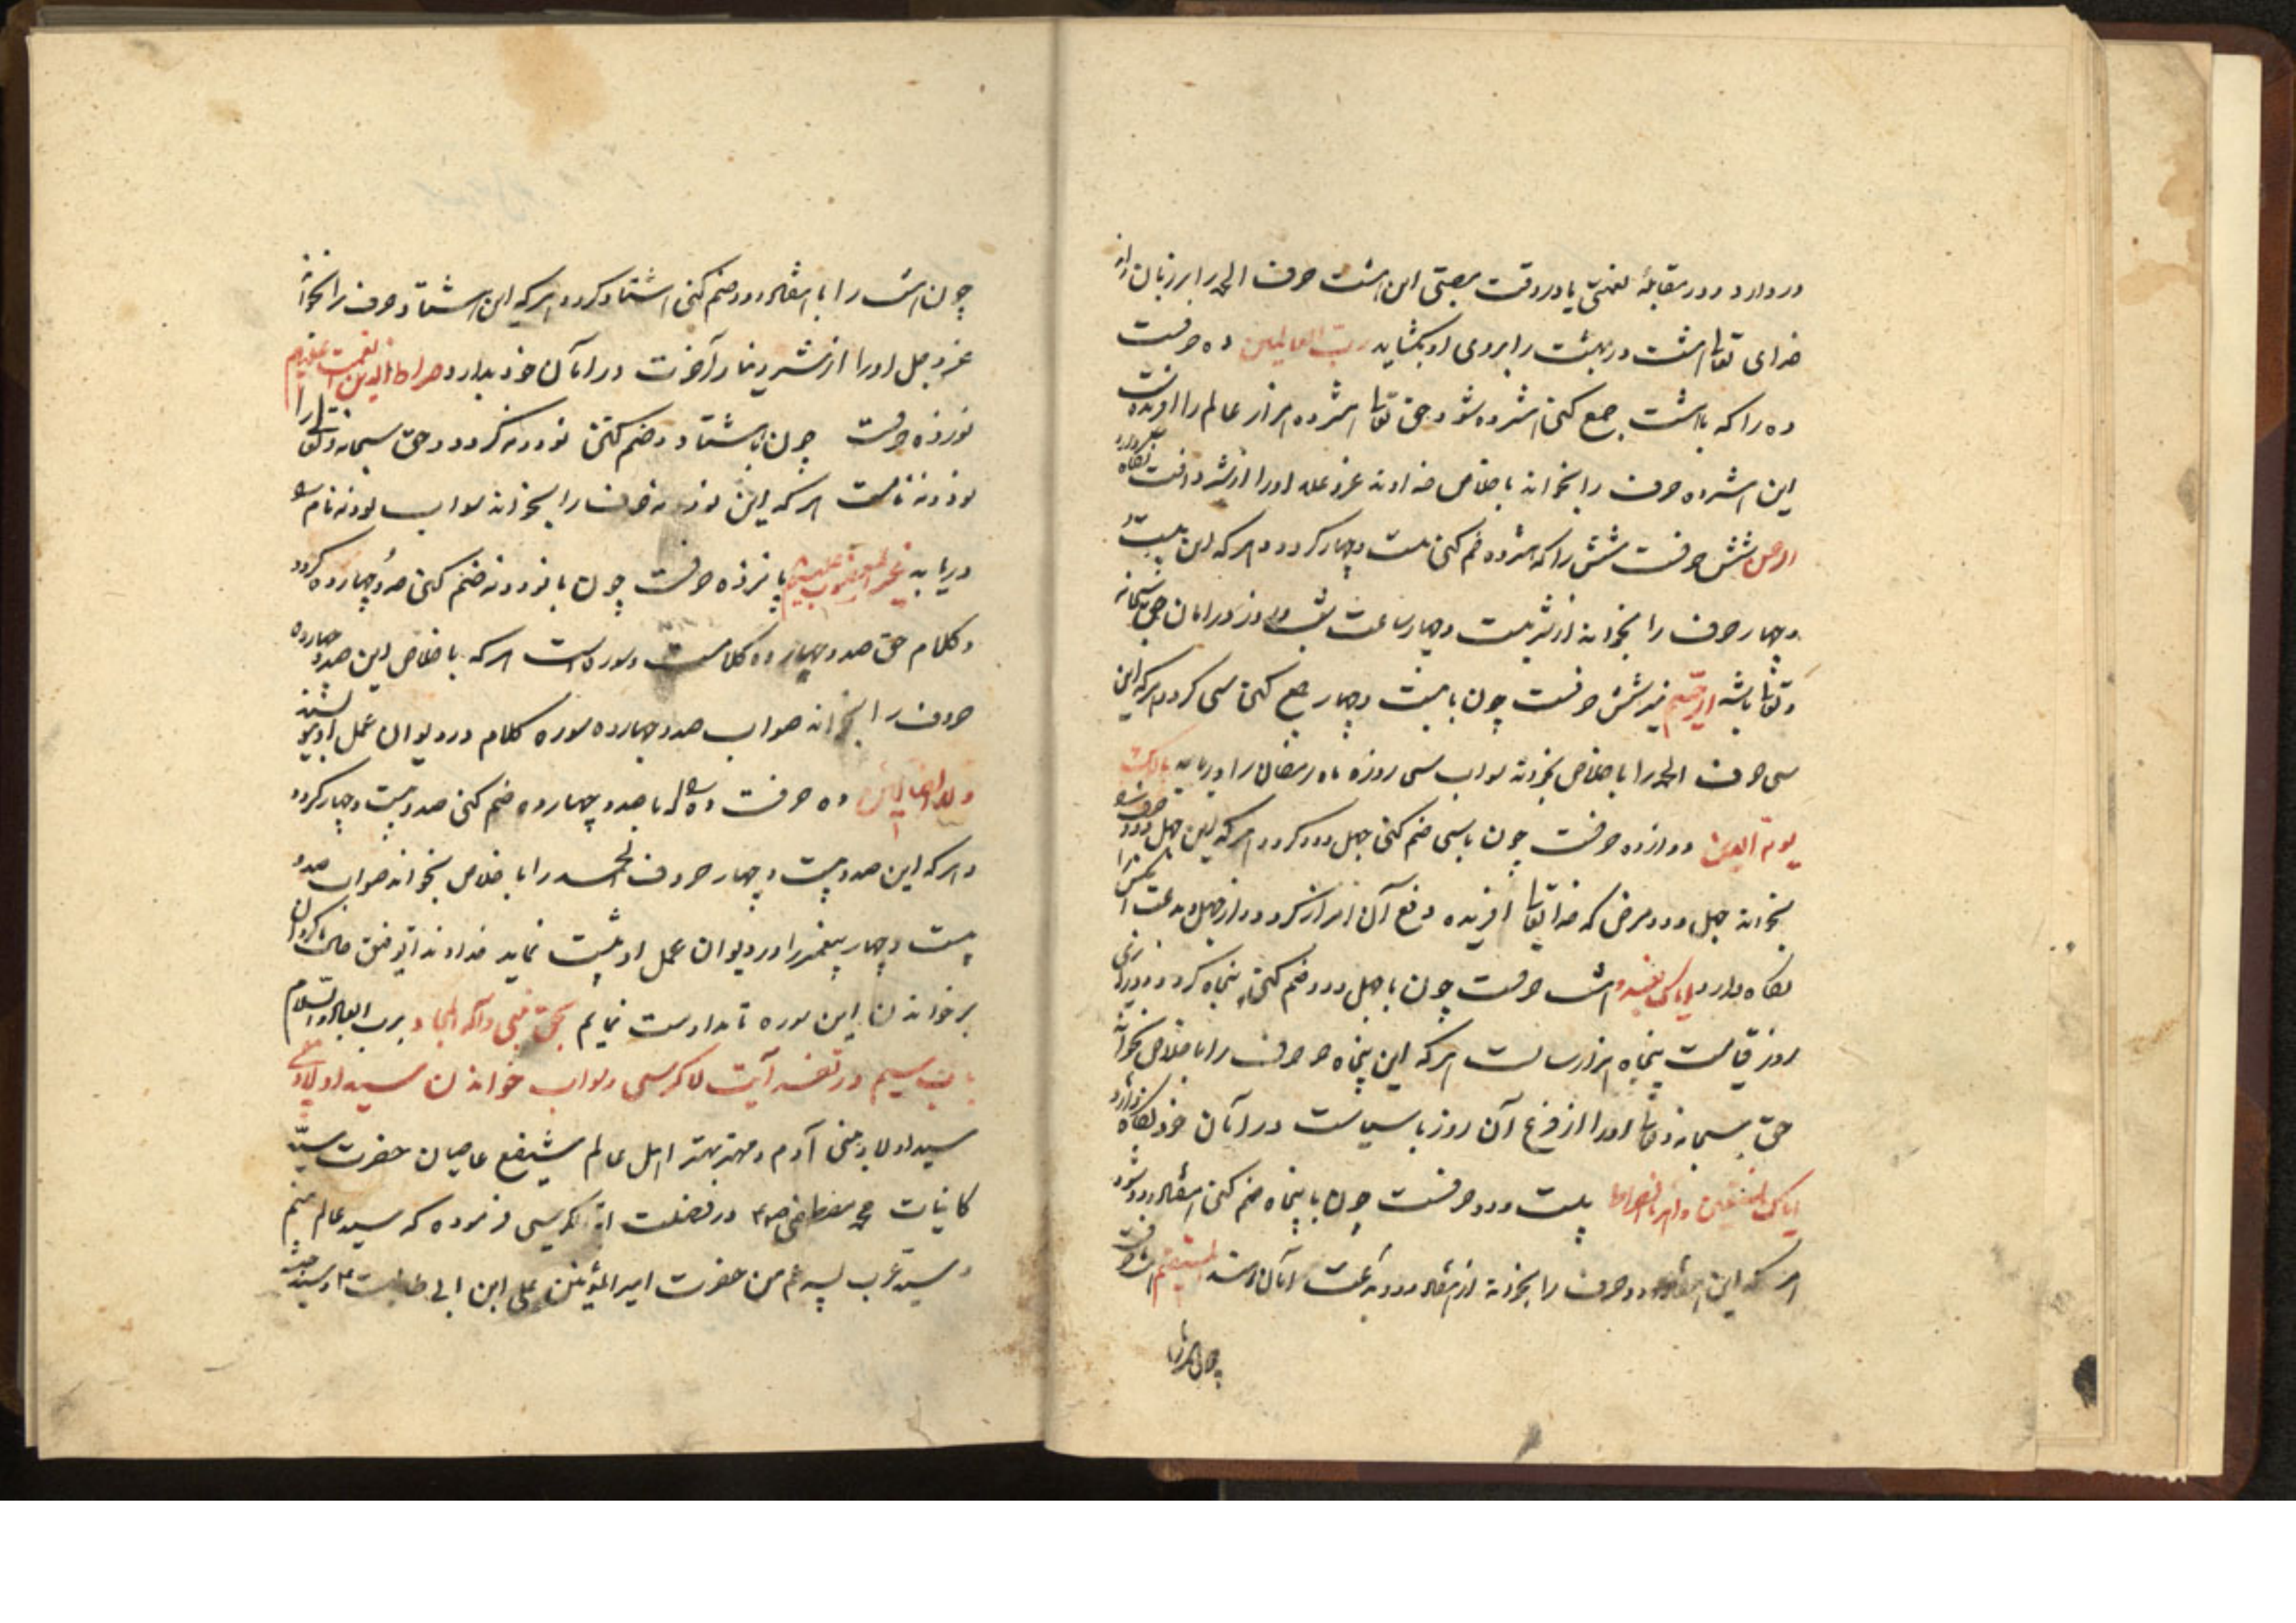 در دارد و در مقابلهٔ نعمتی یا در وقت مصیبتی این هشت حرف الحمد را بر زبان راند
خدای تعالی هشت در بهشت را بروی او بکشاید رب العالمین ده حرفست
ده را که با هشت جمع کنی هشرده شود حق تعالی هشرده هزار عالم را آفریده است
این هشرده حرف را بخواند باخلاص خداوند عز و علا او را از شر و آفت نگاه
الرحمن شش حرفست شش را که با هشرده ضم کنی بیست و چهار گردد و هر که این بیست
و چهار حرف را بخواند از شر بیست و چهار ساعت شب و روز در امان حق سبحانه
و تعالی باشد الرحیم نیز شش حرفست چون با بیست و چهار جمع کنی سی گردد هر که این
سی حرف الحمد را باخلاص بخواند ثواب سی روزه ماه رمضان را دریابد مالک
یوم الدین دوازده حرفست چون با سی ضم کنی چهل و دو گردد هر که این چهل و دو حرف
بخواند چهل و دو مرض که خدایتعالی آفریده دفع آن از او گردد و از چهل و دو علت
نگاه دارد ایاک نعبد و هشت حرفست چون با چهل و دو ضم کنی پنجاه گردد و درازی
روز قیامت پنجاه هزار سالست هر که این پنجاه حرف را باخلاص بخواند
حق سبحانه و تعالی او را از فزع آن روز با سیاست در امان خود نگاه دارد
ایاک نستعین و اهدنا الصراط بیست و دو حرفست چون با پنجاه ضم کنی هفتاد و دو شود
هر که این هفتاد و دو حرف را بخواند از هفتاد و دو علت امان یابد المستقیم هشت حرفست
چون هشت را با هفتاد و دو ضم کنی هشتاد گردد هر که این هشتاد حرف را بخواند
عز و جل او را از شر دنیا و آخرت در امان خود بدارد صراط الذین انعمت علیهم
نوزده حرفست چون با هشتاد ضم کنی نود و نه گردد و حق سبحانه و تعالی را
نود و نه نامست هر که این نود و نه حرف را بخواند ثواب نود و نه نام
دریابد غیر المغضوب علیهم پانزده حرفست چون با نود و نه ضم کنی صد و چهارده گردد
و کلام حق صد و چهارده کلامست و سوره است هر که باخلاص این صد و چهارده
حروف را بخواند صواب صد و چهارده سوره کلام در دیوان عمل او بنویسند
ولا الضالین ده حرفست ده را با صد و چهارده ضم کنی صد و بیست و چهار گردد
و هر که این صد و بیست و چهار حروف الحمد را باخلاص بخواند صواب صد و
بیست و چهار پیغمبر را در دیوان عمل او ثبت نماید خداوندا توفیق
بر خواندن این سوره تا مداومت نمایم بحق نبی و آله الامجاد برب العباد والسلام
باب سیم در تفسیر آیت الکرسی و ثواب خواندن سید اولاد
سید اولاد بنی آدم و مهتر بهتر اهل عالم شفیع عاصیان حضرت سید
کاینات محمد مصطفی در فضیلت آیة الکرسی فرموده که سید عالم منم
و سید عرب پسر عم من حضرت امیر المؤمنین علی ابن ابی طالبست و سید